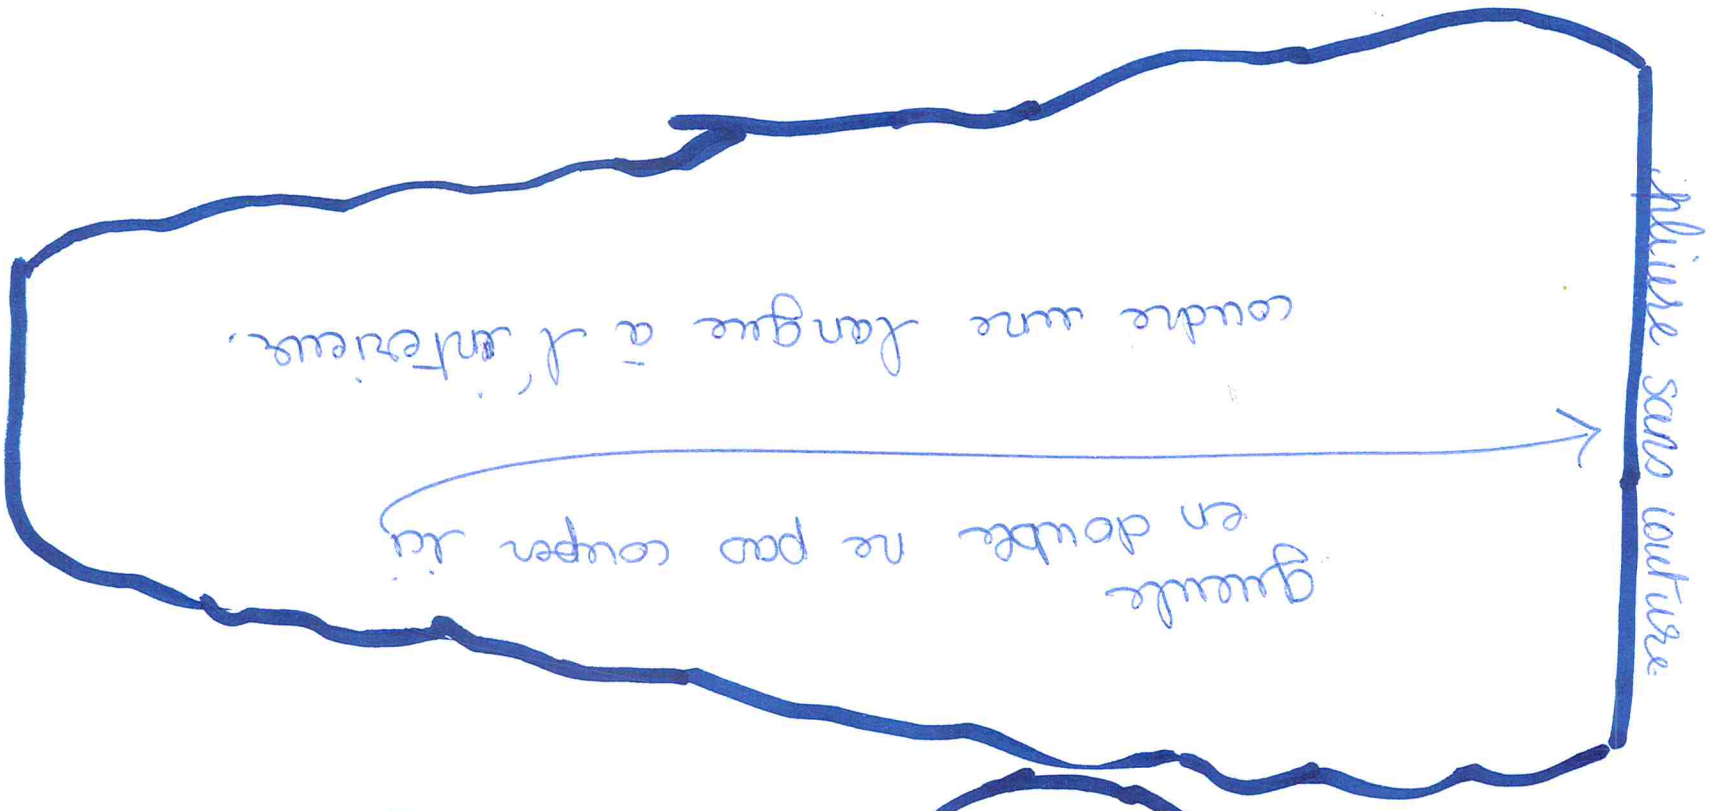 gueule
en double ne pas couper ici
coudre une langue à l'intérieur.
pliure sans couture